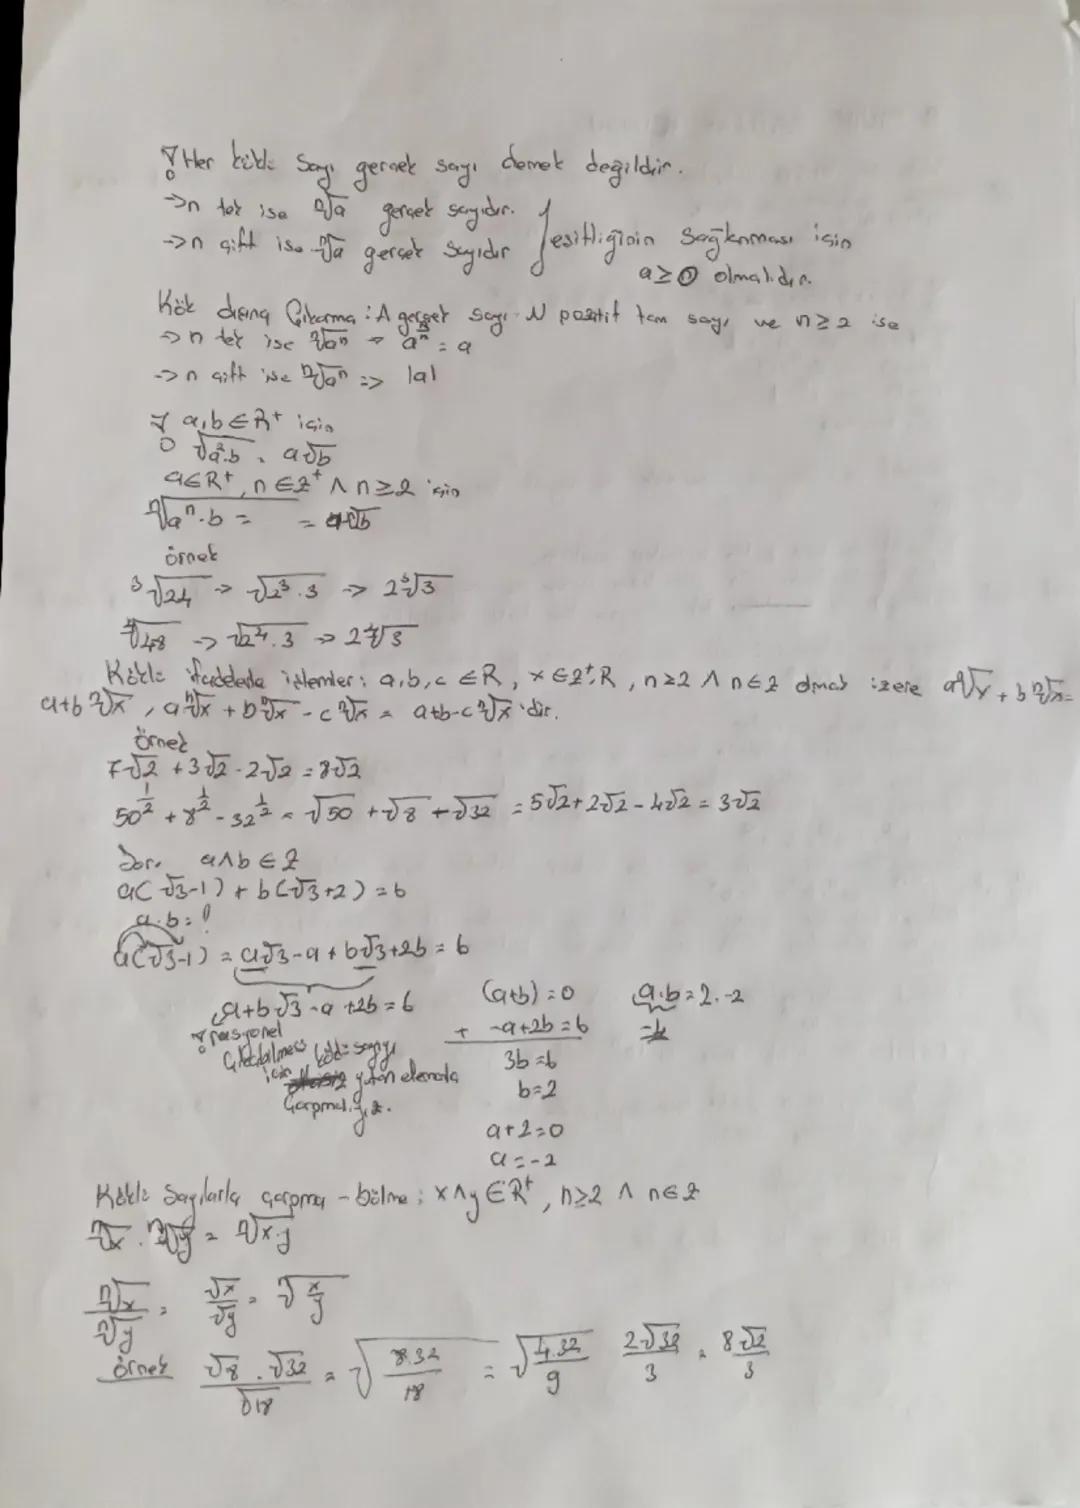 ! Her köklü Sayı gerçek sayı demek değildir.
->n tek ise ⁿ√a gerçek sayıdır.
->n çift ise ⁿ√a gerçek sayıdır } eşitliğinin Sağlanması için
a≥0 olmalıdır.
Kök dışına Çıkarma : A gerçek sayı N pozitif tam sayı ve n≥2 ise
->n tek ise ⁿ√aⁿ → a^(n/n) = a
->n çift ise ⁿ√aⁿ => |a|
! a,b ∈ R⁺ için
√a².b = a√b
a∈R⁺, n∈Z⁺ ∧ n≥2 için
ⁿ√aⁿ.b = = aⁿ√b
örnek
³√24 -> √2³.3 -> 2³√3
⁴√48 -> √2⁴.3 -> 2⁴√3
Köklü ifadelerle işlemler: a,b,c ∈ R, x ∈ Z⁺,R, n≥2 ∧ n∈Z olmak üzere aⁿ√x + bⁿ√x =
a+b ⁿ√x, aⁿ√x + bⁿ√x - cⁿ√x = a+b-cⁿ√x 'dir.
Örnek
7√2 + 3√2 - 2√2 = 8√2
50^(1/2) + 8^(1/2) - 32^(1/2) = √50 + √8 + √32 = 5√2 + 2√2 - 4√2 = 3√2
Soru a∧b ∈ Z
a(√3-1) + b(√3+2) = 6
a.b = ?
a(√3-1) = a√3-a + b√3+2b = 6
a+b√3 -a +2b = 6 (a+b) = 0 a.b = 2.-2
! rasyonel + -a+2b = 6 =-4
Çıkabilmesi köklü sayıyı 3b = 6
için yutan elemanla b=2
Çarpmalıyız.
a+2=0
a=-2
Köklü Sayılarla çarpma - bölme ; x∧y ∈ R⁺, n≥2 ∧ n∈Z
ⁿ√x . ⁿ√y = ⁿ√x.y
ⁿ√x / ⁿ√y = √x / √y = √(x/y)
örnek √8 . √32 / √18 = √(8.32 / 18) = √(4.32 / 9) 2√32 / 3 = 8√2 / 3